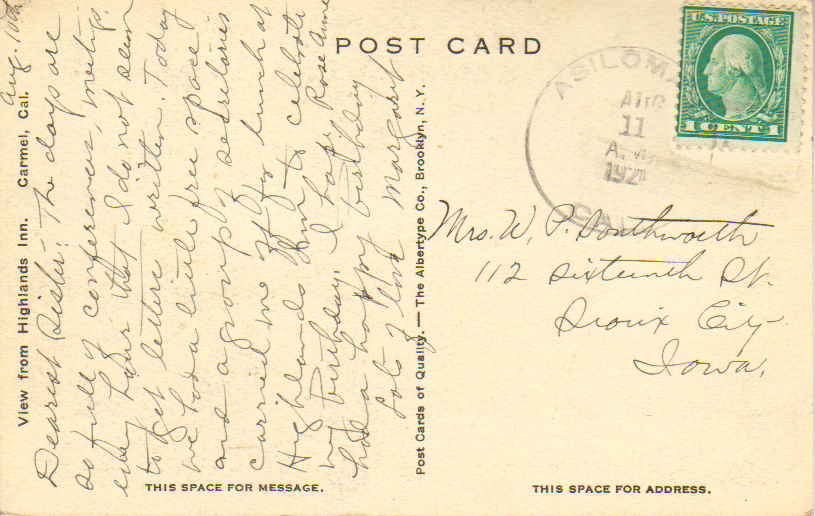 POST CARD
View from Highlands Inn. Carmel, Cal.
Aug. 10th
Dearest Sister: The days are
so full of conferences, meetings.
every hour that I do not seem
to get letters written. Today
we had a little free space
and a group of secretaries
carried me off for lunch at
Highlands Inn to celebrate
my birthday. I hope Rose Anne
had a happy birthday
Lots of love Margaret
Post Cards of Quality. — The Albertype Co., Brooklyn, N. Y.
THIS SPACE FOR MESSAGE.
U.S. POSTAGE
1 CENT 1
ASILOM
AUG
11
A.M.
192
CAL
Mrs. W. P. Southworth
112 Sixteenth St.
Sioux City
Iowa.
THIS SPACE FOR ADDRESS.